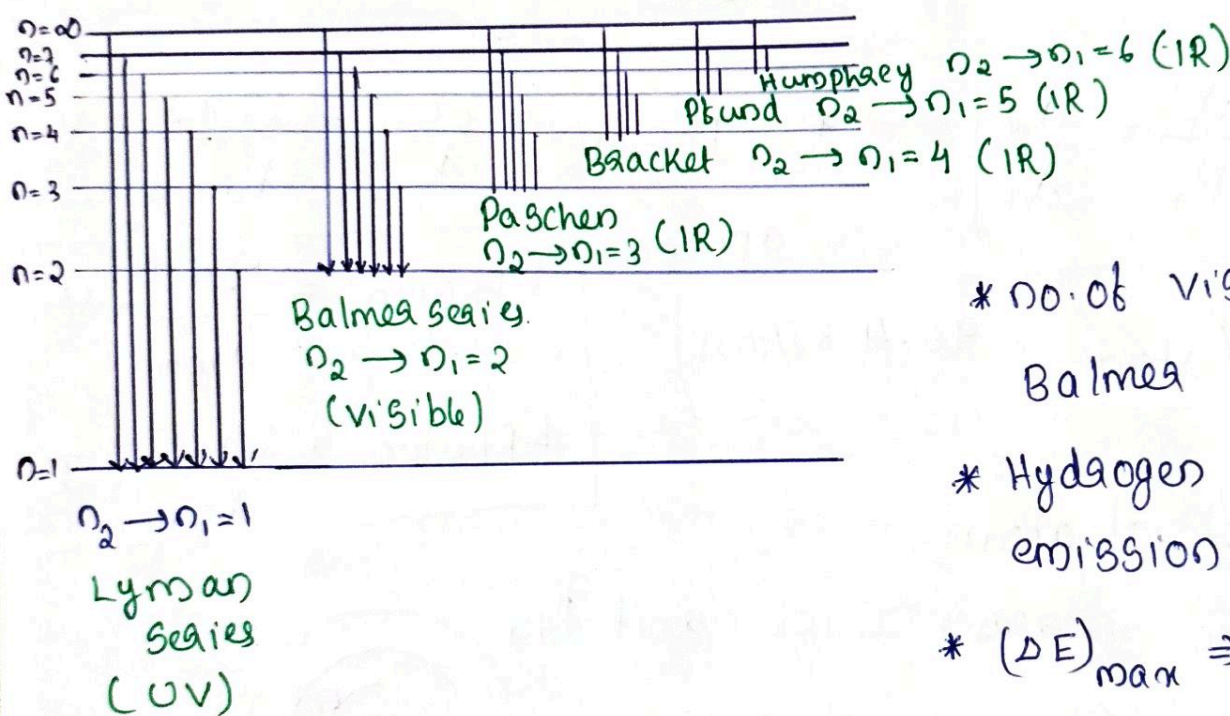 n=∞
n=7
n=6
n=5
n=4
n=3
n=2
n=1
Humphrey n₂ → n₁ = 6 (IR)
Pfund n₂ → n₁ = 5 (IR)
Bracket n₂ → n₁ = 4 (IR)
Paschen
n₂ → n₁ = 3 (IR)
Balmer series.
n₂ → n₁ = 2
(visible)
n₂ → n₁ = 1
Lyman
Series
(UV)
* no. of Vis
Balmer
* Hydrogen
emission
* (ΔE)max ⇒